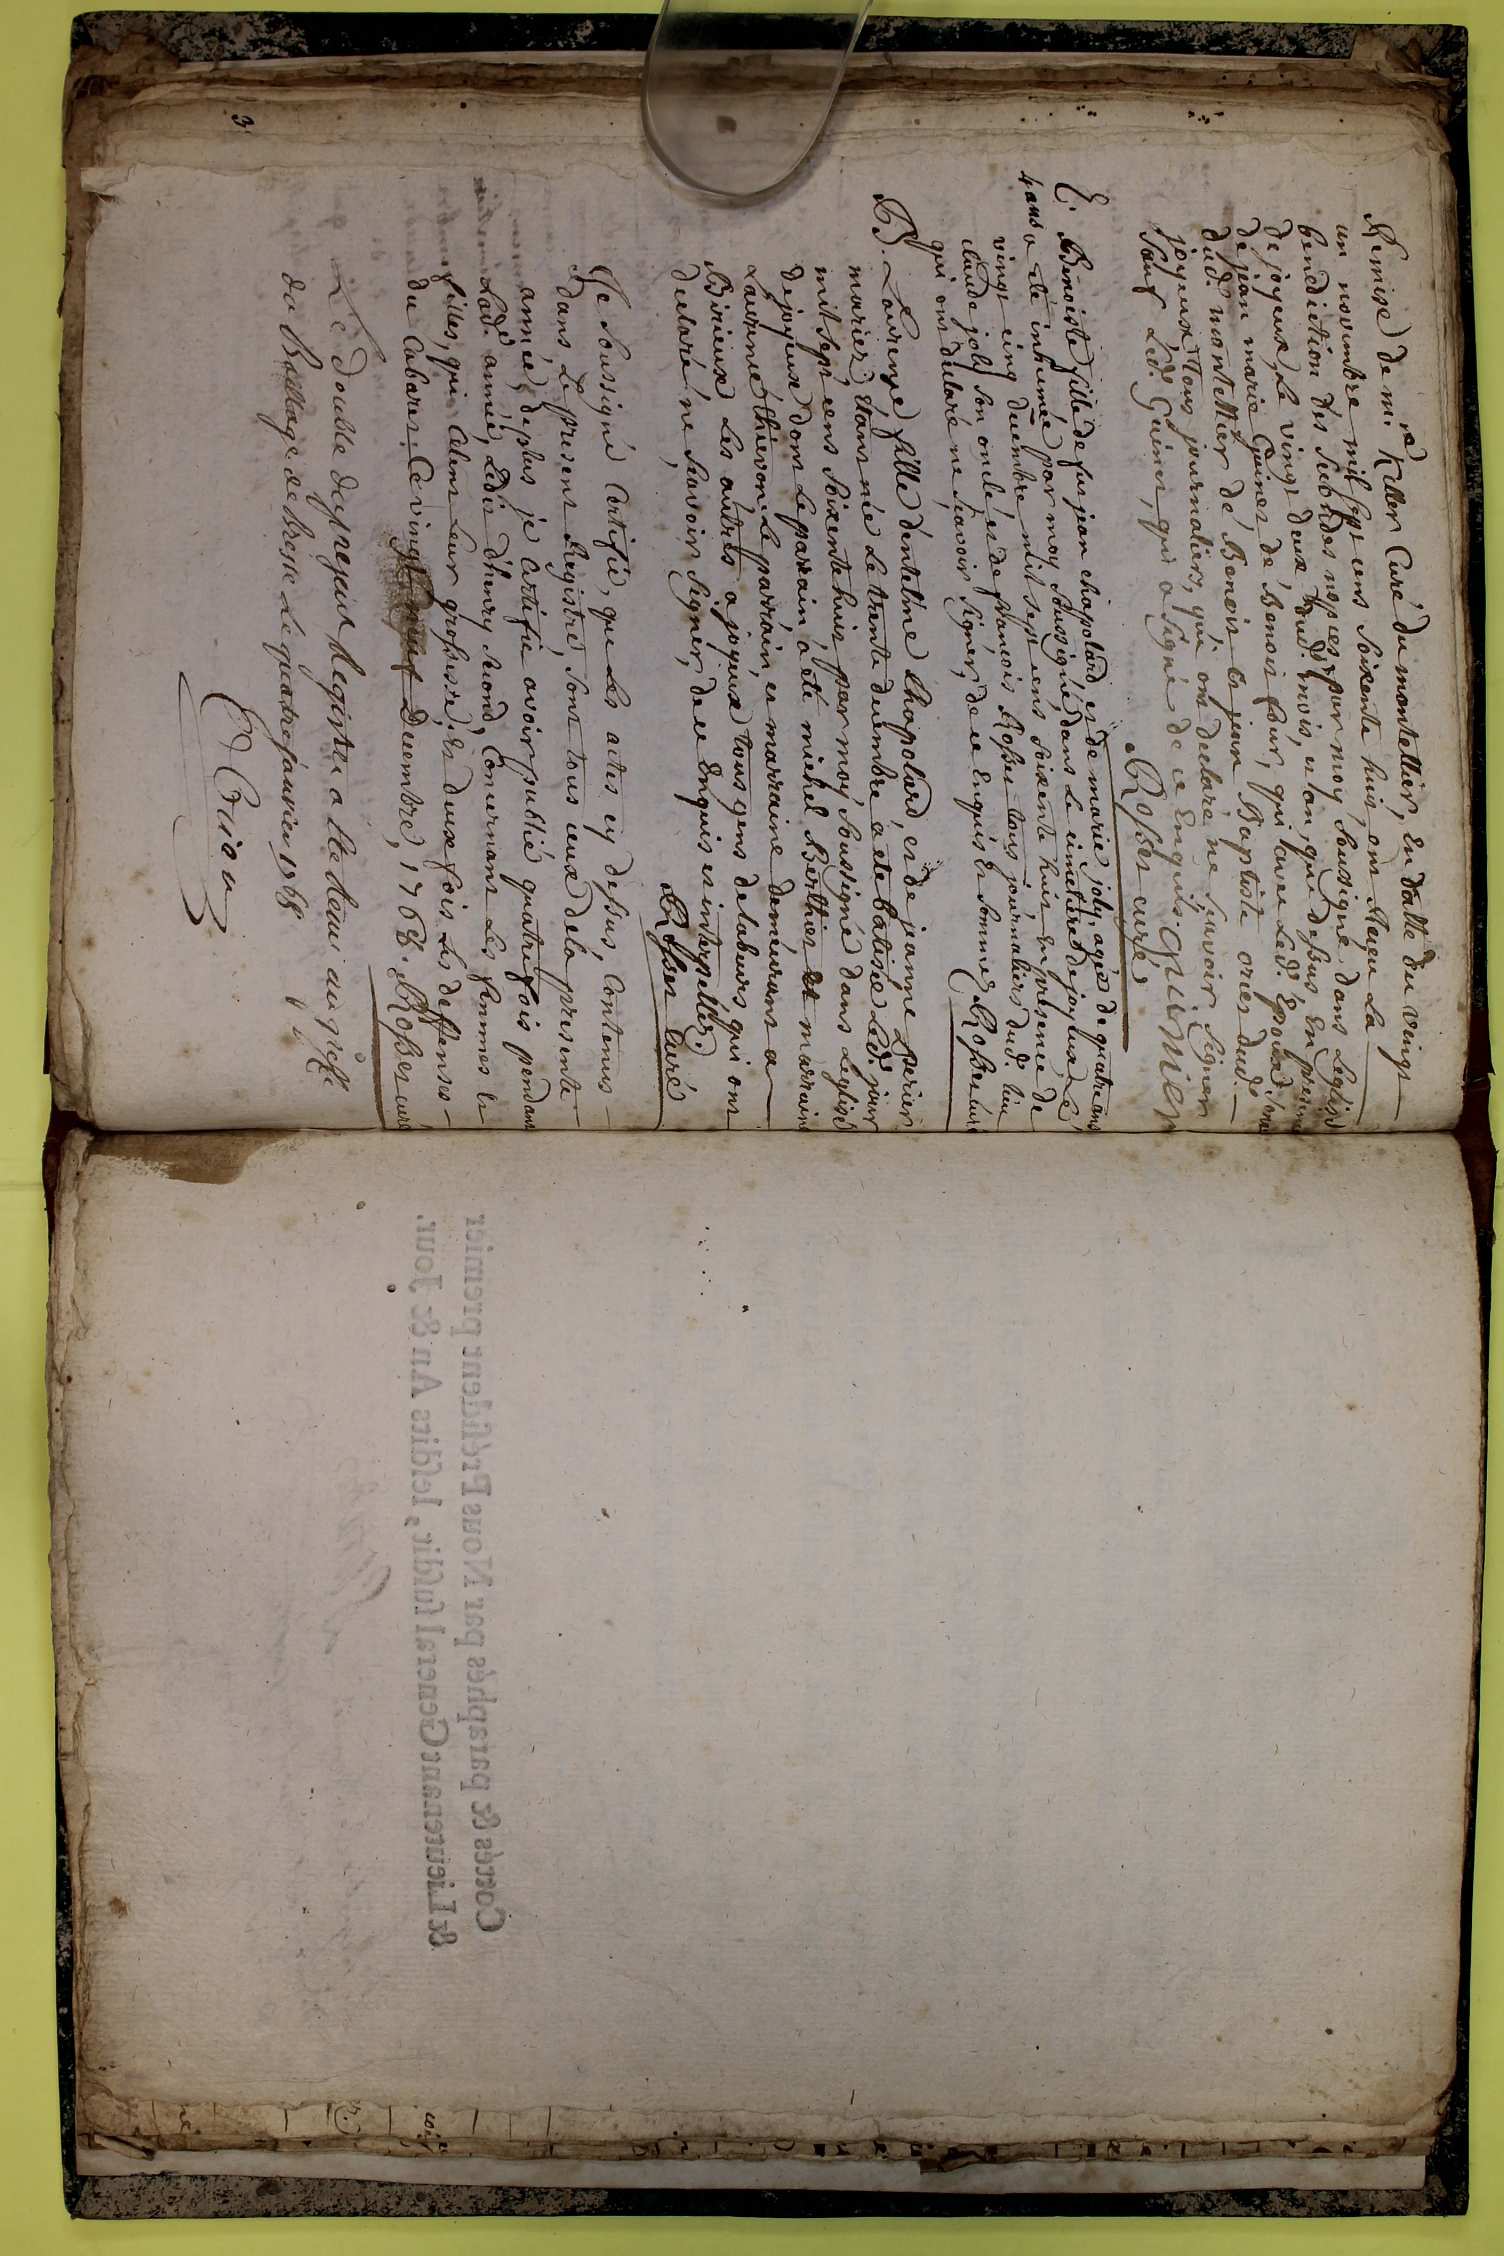 Remise de mr. Killer Curé du montellier, En datte du vingt
un novembre mil sept cens soixente huit, ont Reçeu La
benediction des secondes nopces, par moy soussigné dans L'eglise
de joyeux, Le vingt deux dud. mois, et an, que dessus En presence
de jean marie Guinet de benoit four, qui avec Led. Epoux
dud. montellier de Benoit et jean Baptiste orier dud.
joyeux tous journaliers, qui ont declaré ne sçavoir signer
sauf Led. Guinet, qui a signé de ce Enquis. GUINIER
Rosset curé
E. Benoiste fille de fut jean chapolard et de marie joly, agée de quatre ans
4 ans a été inhumée par moy soussigné dans Le cimetiere de joyeux Le
vingt cinq decembre mil sept cens soixente huit En presence de
claude joly son oncle, et de francois Rosset tous journaliers dud. lieu
qui ont declaré ne sçavoir signer, de ce Enquis Et sommé Rosset curé
B. Laurence fille d'entelme Chapolard, et de janne Perier
mariez, étant née Le trente decembre a été batisée Led. jour
mil sept cens soixente huit par moy soussigné dans L'eglise
de joyeux dont Le parrain a été michel Berthier et marraine
Laurence thievon. Le parrain, et marraine demeurans a
Birieux Les autres a joyeux tous gens de labeurs qui ont
declaré ne sçavoir signer, de ce Enquis et interpellez.
Rosset Curé
Je soussigné Certifie, que Les actes cy dessus, Contenus
dans Le present Registre, sont tous ceux de la presente
année, de plus je Certifie avoir publié quatre fois pendant
Lad. année, L'edit d'henry second, Concernant Les femmes et
filles, qui Celent Leur grossesse, Et deux fois Les deffenses
du Cabaret. Ce vingt neuf Decembre, 1768. Rosset curé
Le double du present Registre a été Remis au greffe
du Balliage de Bresse Le quatre janvier 1768
3
Cotés & paraphés par Nous Président premier
& Lieutenant General susdit, lesdits An & Jour.